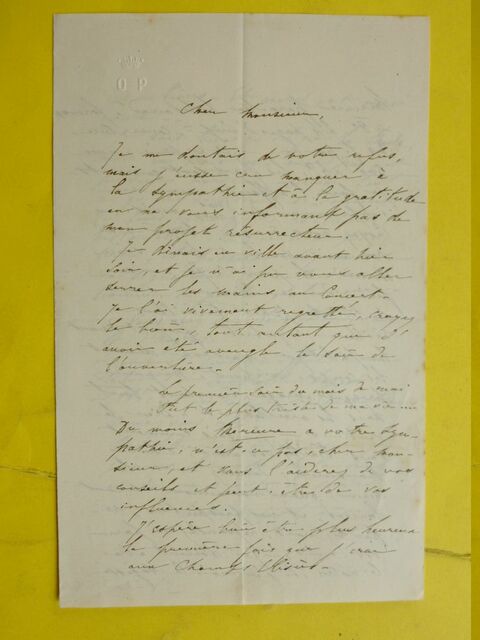 O P
Cher Monsieur,
Je me doutais de votre refus,
mais j'eusse cru manquer à
la sympathie et à la gratitude
en ne vous informant pas de
mon projet résurrecteur.
Je dinais en ville avant hier
soir, et je n'ai pu vous aller
serrer les mains, au Concert.
Je l'ai vivement regretté, croyez
le bien, tout autant que d'
avoir été aveugle le soir de
l'ouverture.
Le premier soir du mois de mai
Fut le plus triste de ma vie...
Du moins Mercure a votre sym-
pathie, n'est-ce pas, cher mon-
sieur, et vous l'aiderez de vos
conseils et peut-être de vos
influences.
J'espère bien être plus heureux
la première fois que j'irai
aux Champs Elisées.